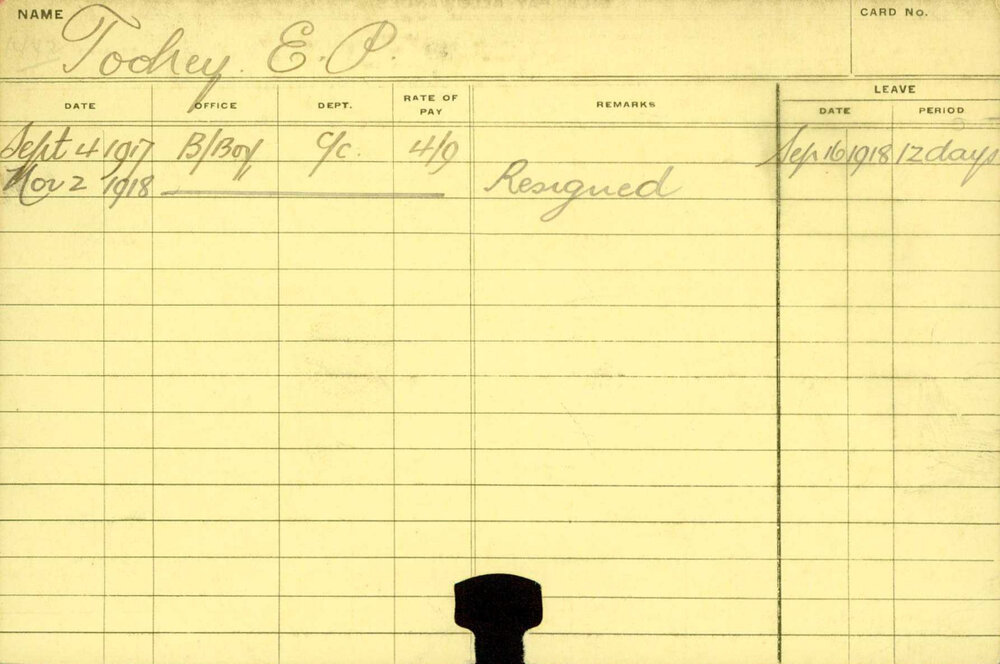 NAME Tochey. E. P. CARD No.
DATE OFFICE DEPT. RATE OF PAY REMARKS LEAVE
DATE PERIOD
Sept 4 1917 B/Boy C/c. 4/9 Sep 16 1918 12 days
Nov 2 1918 Resigned